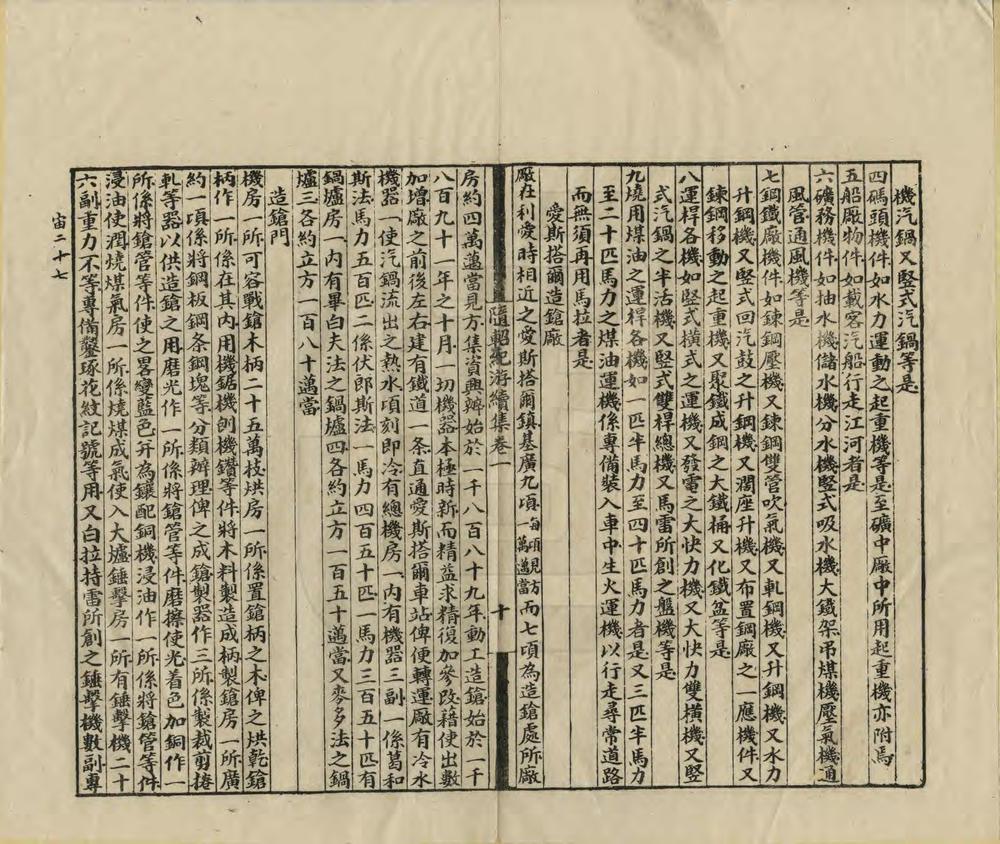 機汽鍋又竪式汽鍋等是
四碼頭機件如水力運動之起重機等是至礦中廠中所用起重機亦附焉
五船廠物件如載客汽船行走江河者是
六礦務機件如抽水機儲水機分水機竪式吸水機大鐵架吊煤機壓氣機通
風管通風機等是
七鋼鐵廠機件如鍊鋼壓機又鍊鋼雙管吹氣機又軋鋼機又升鋼機又水力
升鋼機又竪式回汽鼓之升鋼機又濶座升機又布置鋼廠之一應機件又
鍊鋼移動之起重機又聚鐵成鋼之大鐵桶又化鐵盆等是
八運桿各機如竪式橫式之運機又發電之大快力機又大快力雙橫機又竪
式汽鍋之半活機又竪式雙桿總機又馬雷所創之盤機等是
九燒用煤油之運桿各機如一匹半馬力至四十匹馬力者是又三匹半馬力
至二十匹馬力之煤油運機係專備裝入車中生火運機以行走尋常道路
而無須再用馬拉者是
愛斯塔爾造鎗廠
廠在利愛時相近之愛斯塔爾鎮基廣九頃每頃見方一萬邁當而七頃為造鎗處所廠
隨軺紀游續集卷一
十
房約四萬邁當見方集資興辦始於一千八百八十九年動工造鎗始於一千
八百九十一年之十月一切機器本極時新而精益求精復加參改藉使出數
加增廠之前後左右建有鐵道一条直通愛斯塔爾車站俾便轉運廠有冷水
機器一使汽鍋流出之熱水頃刻即冷有總機房一內有機器三副一係葛和
斯法馬力五百匹二係伏郎斯法一馬力四百五十匹一馬力三百五十匹有
鍋爐房一內有畢白夫法之鍋爐四各約立方一百五十邁當又麥多法之鍋
爐三各約立方一百八十邁當
造鎗門
機房一所可容戰鎗木柄二十五萬枝烘房一所係置鎗柄之木俾之烘乾鎗
柄作一所係在其內用機鋸機刨機鑽等件將木料製造成柄製鎗房一所廣
約一項係將鋼板鋼条鋼塊等分類辦理俾之成鎗製器作三所係製裁剪捲
軋等器以供造鎗之用磨光作一所係將鎗管等件磨擦使光着色加銅作一
所係將鎗管等件使之畧變藍色并為鑲配銅機浸油作一所係將鎗管等件
浸油使潤燒煤氣房一所係燒煤成氣使入大爐錘擊房一所有錘擊機二十
六副重力不等專備鏨琢花紋記號等用又白拉持雷所創之錘擊機數副專
宙二十七